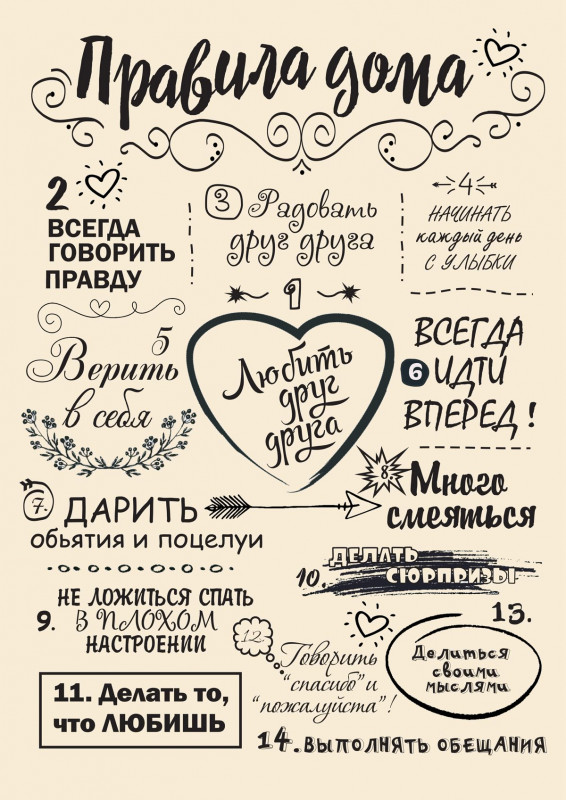 Правила дома
2
ВСЕГДА
ГОВОРИТЬ
ПРАВДУ
3 Радовать
друг друга
4
НАЧИНАТЬ
каждый день
С УЛЫБКИ
1
Любить
друг
друга
5
Верить
в себя
ВСЕГДА
6 ИДТИ
ВПЕРЕД!
7. ДАРИТЬ
обьятия и поцелуи
8. Много
смеяться
9. НЕ ЛОЖИТЬСЯ СПАТЬ
В ПЛОХОМ
НАСТРОЕНИИ
10. ДЕЛАТЬ
СЮРПРИЗЫ
11. Делать то,
что ЛЮБИШЬ
12.
Говорить
"спасибо" и
"пожалуйста"!
13.
Делиться
своими
мыслями
14. ВЫПОЛНЯТЬ ОБЕЩАНИЯ